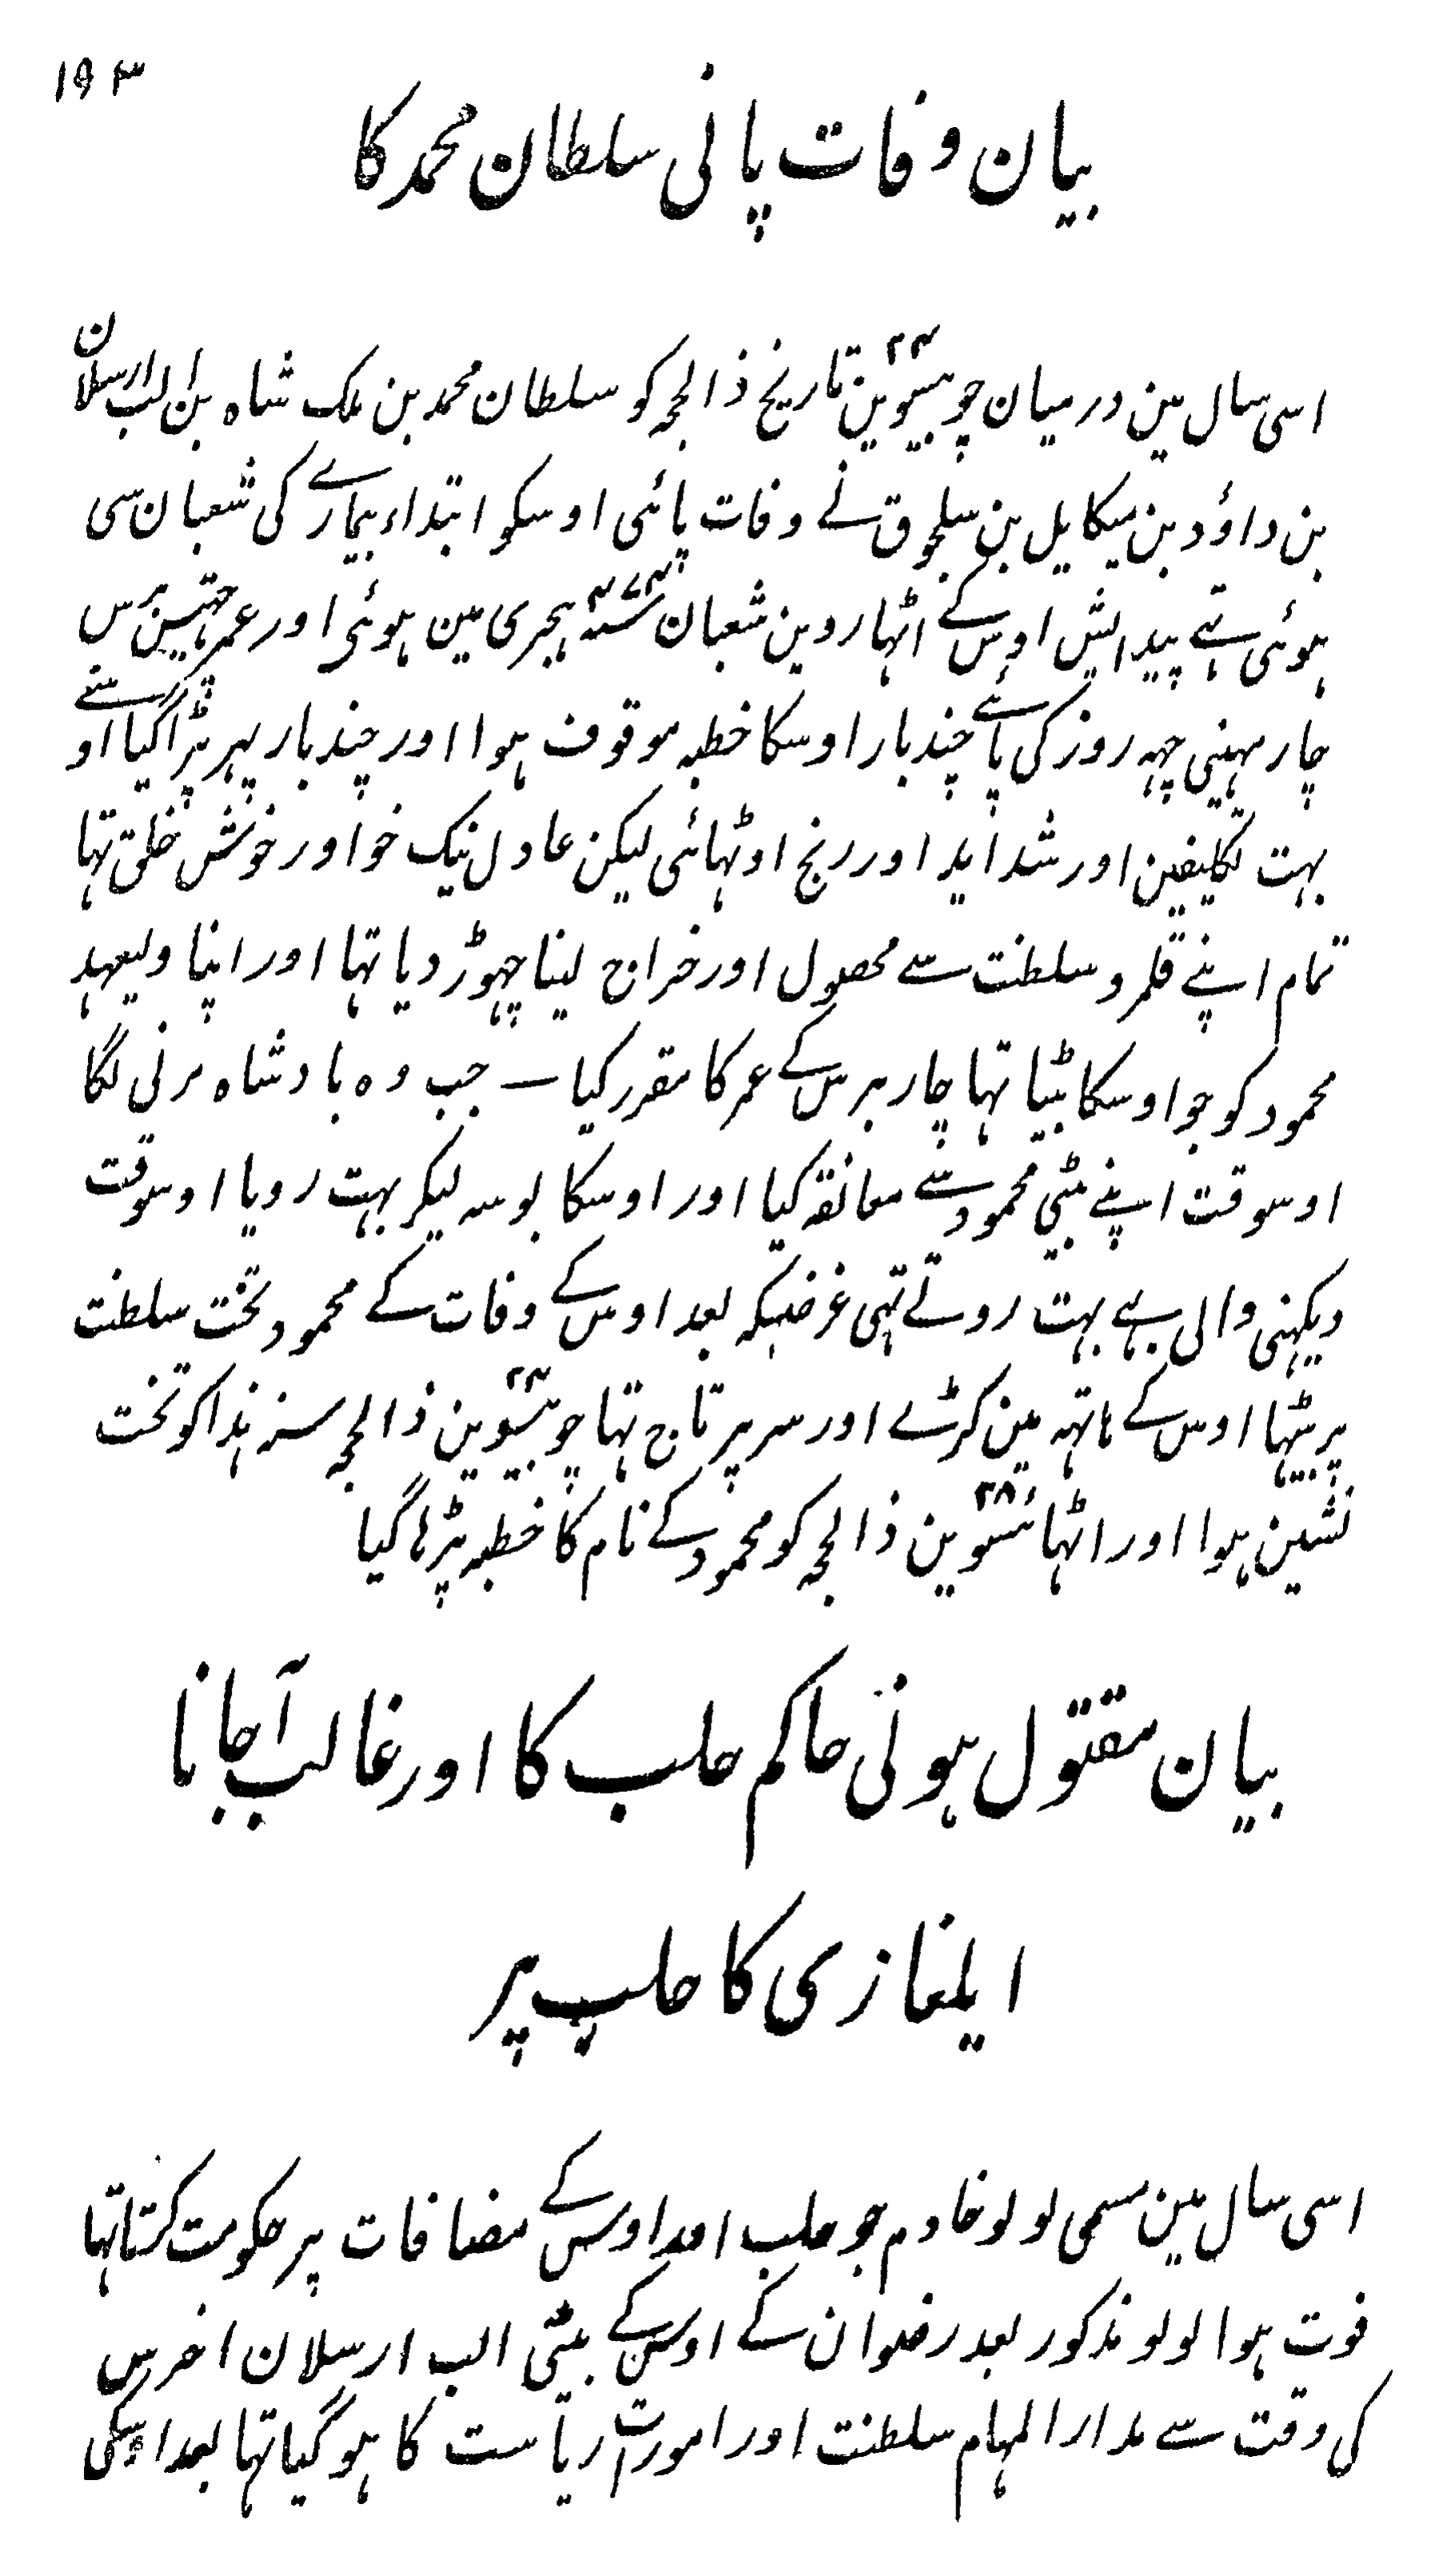 ۱۹۳
بیان وفات پانی سلطان محمد کا
اسی سال مین درمیان چوبیسوین ۲۴ تاریخ ذالحجہ کو سلطان محمد بن ملک شاہ بن الب ارسلان
بن داؤد بن میکایل بن سلجوق نے وفات پائی اوسکو ابتداء بیمارے کی شعبان سی
ہوئی تہے پیدایش اوس کے اٹہاروین شعبان ۴۷۴ سنہ ہجری مین ہوئی اور عمر چہتیس برس
چار مہینی چہہ روز کی پائے چند بار اوسکا خطبہ موقوف ہوا اور چند بار پہر پڑا گیا اوسنے
بہت تکلیفین اور شداید اور رنج اوٹہائی لیکن عادل نیک خو اور خوش خلق تہا
تمام اپنے قلمرو سلطنت سے محصول اور خراج لینا چہوڑ دیا تہا اور اپنا ولیعہد
محمود کو جو اوسکا بیٹا تہا چار برس کے عمر کا مقرر کیا — جب وہ بادشاہ مرنی لگا
اوسوقت اپنے بیٹی محمود سے معانقہ کیا اور اوسکا بوسہ لیکر بہت رویا اوسوقت
دیکہنی والی بہے بہت روتے تہی غرضیکہ بعد اوس کے وفات کے محمود تخت سلطنت
پر بیٹہا اوس کے ہاتہہ مین کڑے اور سر پر تاج تہا چوبیسوین ۲۴ ذالحجہ سنہ ہذا کو تخت
نشین ہوا اور اٹہائیسوین ۲۸ ذالحجہ کو محمود کے نام کا خطبہ پڑہا گیا
بیان مقتول ہونی حاکم حلب کا اور غالب آجانا
ایلغازی کا حلب پر
اسی سال مین مسمی لولو خادم جو حلب اور اوس کے مضافات پر حکومت کرتا تہا
فوت ہوا لولو مذکور بعد رضوان کے اوس کے بیٹی الب ارسلان اخرس
کی وقت سے مدار المہام سلطنت اور امورات ریاست کا ہو گیا تہا بعد اوسکی